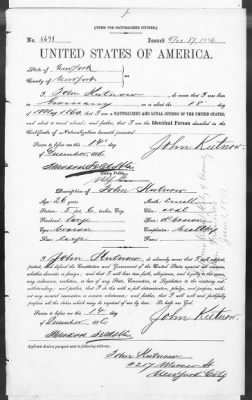 [FORM FOR NATURALIZED CITIZEN.]
No. Issued Dec. 17, 1886
UNITED STATES OF AMERICA.
State of New York
County of New York
I, John Kutnow, do swear that I was born
in Germany on or about the 18th
of May 1860, that I am a NATURALIZED AND LOYAL CITIZEN OF THE UNITED STATES,
and about to travel abroad, and further, that I am the Identical Person described in the
Certificate of Naturalization herewith presented.
Sworn to before me this 14th
of December 1886
John Kutnow.
Notary Public
Description of John Kutnow
Age: 26 years
Mouth: small
Stature: 5 feet 6 inches, Eng.
Chin: oval
Forehead: large
Hair: d'brown
Eyes: brown
Complexion: healthy
Nose: large
Face:
I, John Kutnow, do solemnly swear that I will support,
protect, and defend the Constitution and Government of the United States against all enemies,
whether domestic or foreign; and that I will bear true faith, allegiance, and loyalty to the same,
any ordinance, resolution, or law of any State, Convention, or Legislature to the contrary not-
withstanding; and further, that I do this with a full determination, pledge, and purpose, without
any mental reservation or evasion whatsoever; and further, that I will well and faithfully
perform all the duties which may be required of me by law. So help me God.
Sworn to before me this 14
of December 1886
John Kutnow.
Applicant desires passport sent to following address:
John Kutnow
New York City